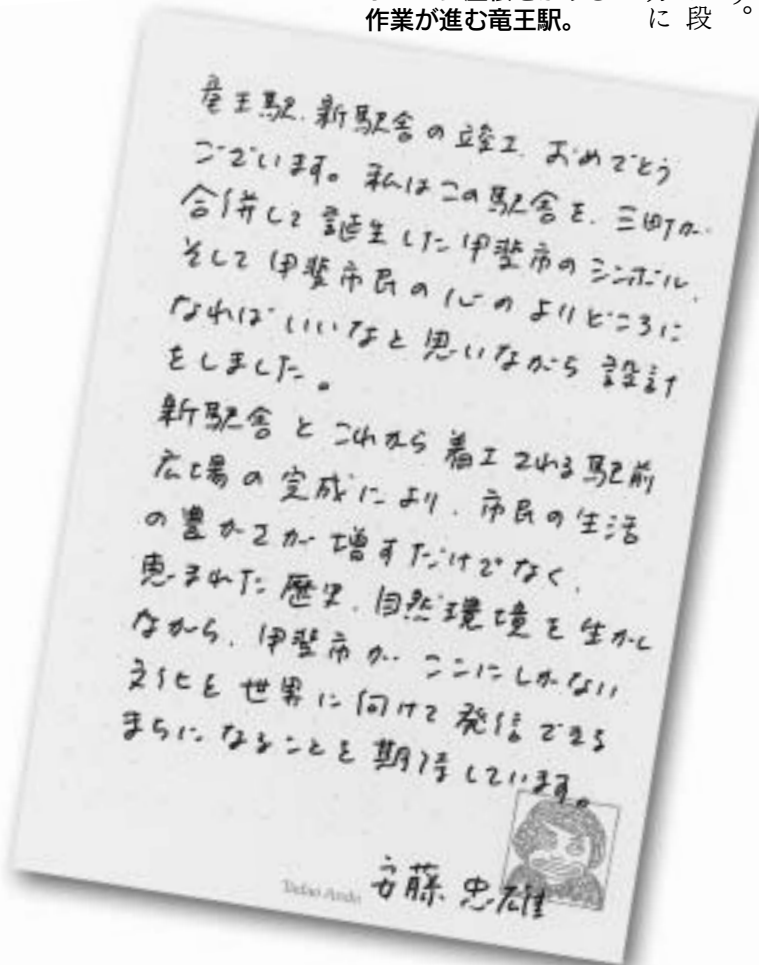 作業が進む竜王駅。
に段
す。
竜王駅.新駅舎の竣工.おめでとう
ございます。私はこの駅舎を、三町が
合併して誕生した甲斐市のシンボル、
そして甲斐市民の心のよりどころに
なればいいなと思いながら設計
をしました。
新駅舎とこれから着工される駅前
広場の完成により、市民の生活
の豊かさが増すだけでなく、
恵まれた歴史、自然環境を生かし
ながら、甲斐市が ここにしかない
文化を世界に向けて発信できる
まちになることを期待しています。
Tadao Ando 安藤忠雄